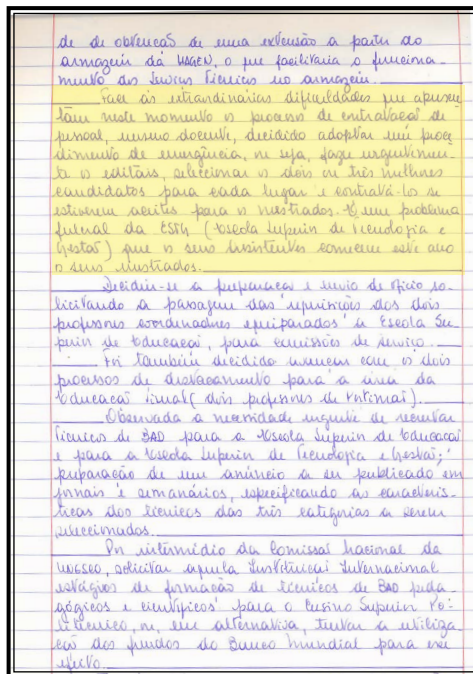 de de obtenção de uma extensão a partir do
armazém da USGEN, o que facilitaria o funciona-
mento dos Serviços Técnicos no armazém.
Face às extraordinárias dificuldades que apresen-
tam neste momento o processo de contratação de
pessoal, mesmo docente, decidido adoptar um proce-
dimento de emergência, ou seja, fazer urgentemen-
te os editais, selecionar os dois ou três melhores
candidatos para cada lugar e contratá-los se
estiverem aceites para os mestrados. É um problema
fulcral da ESTG (Escola Superior de Tecnologia e
Gestão) que os seus assistentes comecem este ano
os seus mestrados.
Decidiu-se a preparação e envio de ofício so-
licitando a passagem das requisições dos dois
professores coordenadores equiparados à Escola Su-
perior de Educação, para comissões de serviço.
Foi também decidido avançar com os dois
processos de destacamento para a área da
Educação Visual (dois professores de
Observada a necessidade urgente de recrutar
Técnicos de BAD para a Escola Superior de Educação
e para a Escola Superior de Tecnologia e Gestão;
preparação de um anúncio a ser publicado em
jornais e semanários, especificando as caracterís-
ticas dos técnicos das três categorias a serem
seleccionados.
Por intermédio da Comissão Nacional da
UNESCO, solicitar àquela Instituição Internacional
estágios de formação de técnicos de BAD peda-
gógicos e científicos para o Ensino Superior Po-
litécnico, ou, em alternativa, tentar a utiliza-
ção dos fundos do Banco Mundial para esse
efeito.